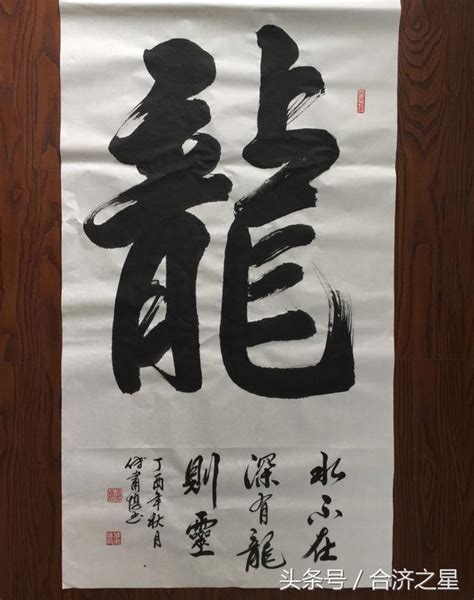 龍
水不在
深有龍
則靈
丁酉年秋月
头条号／合济之星